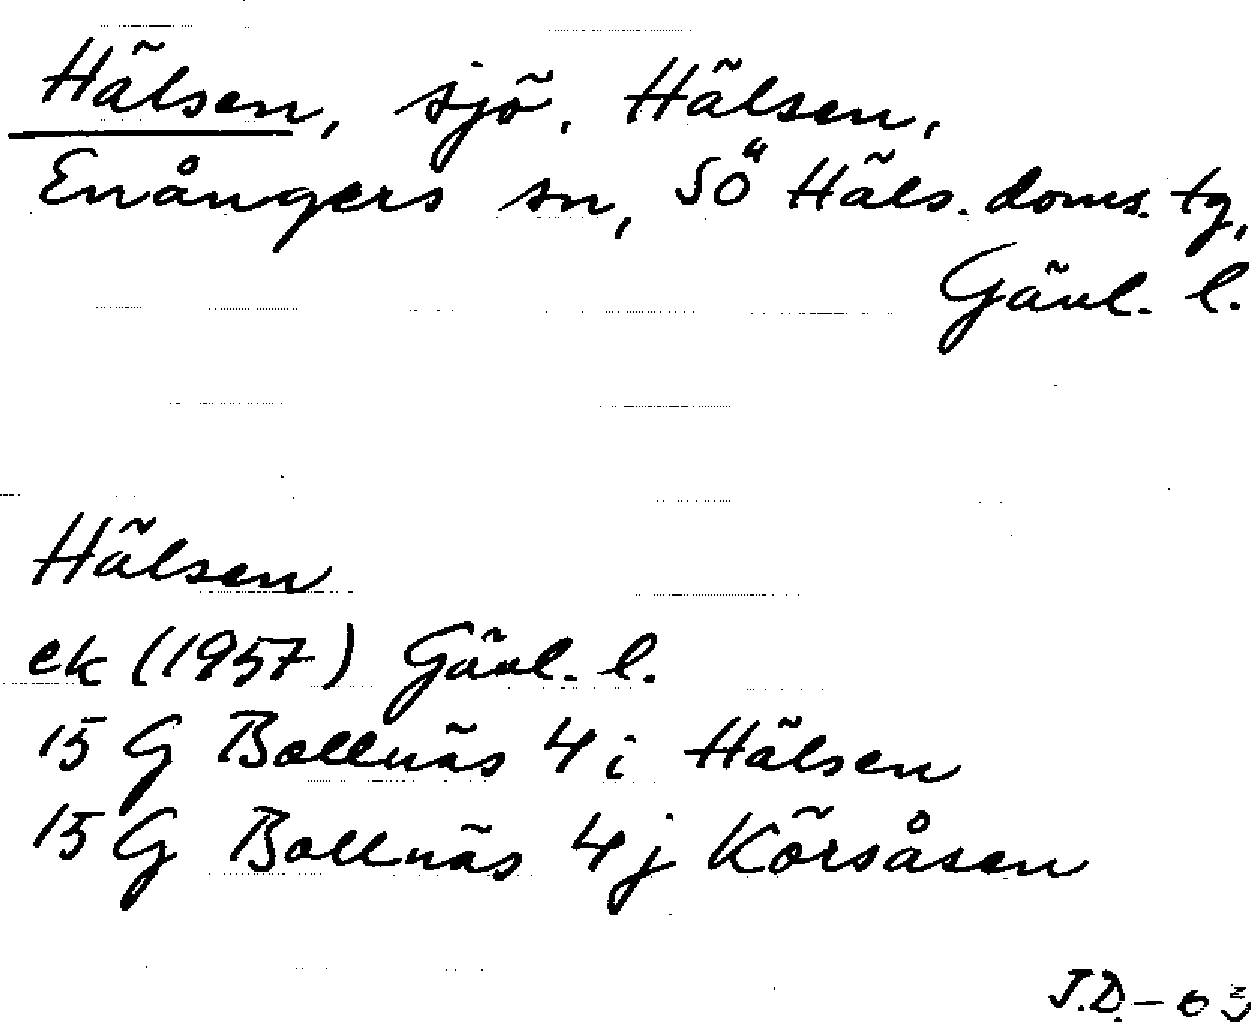 Hälsen, sjö. Hälsen,
Enångers sn, SÖ Häls. doms. tg,
Gävl. l.
Hälsen
ek (1957) Gävl. l.
15 G Bollnäs 4 i Hälsen
15 G Bollnäs 4 j Körsåsen
J.D. - 63